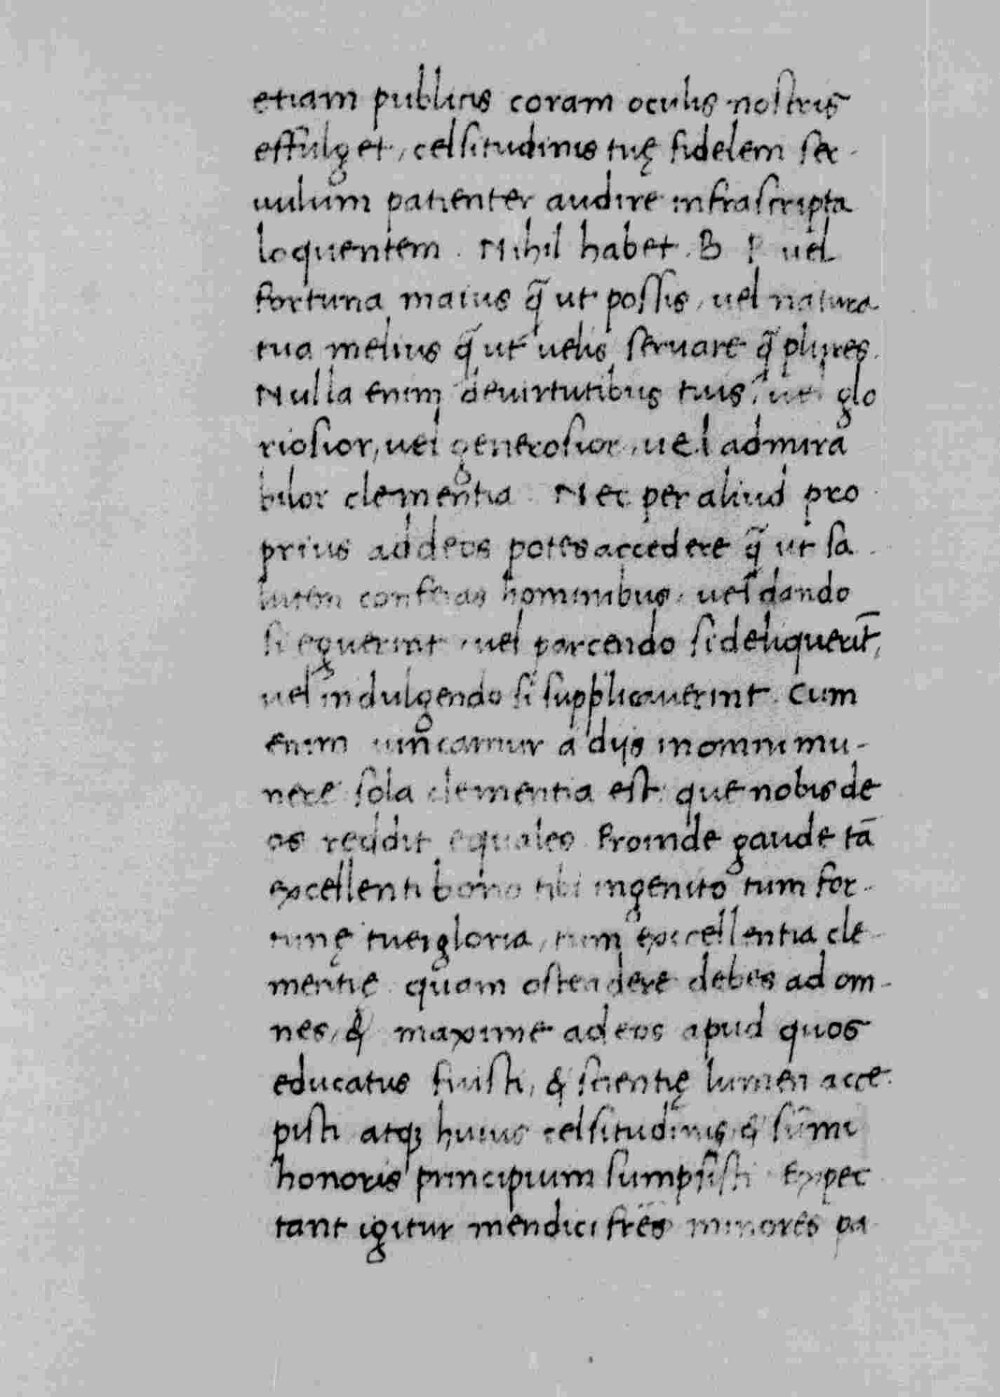 etiam publicis coram oculis nostris
effulget, celsitudinis tuę fidelem ser-
uulum patienter audire infrascripta
loquentem. Nihil habet. B. P. uel
fortuna maius q̃ ut possis, uel natura
tua melius q̃ ut uelis seruare q̃ plures.
Nulla enim de uirtutibus tuis, uel glo
riosior, uel generosior, uel admira
bilor clementia. Nec per aliud pro
prius ad deos potes accedere q̃ ut sa-
lutem conferas hominibus, uel dando
si eguerint, uel parcendo si deliquerĩt,
uel indulgendo si supplicauerint. Cum
enim uincamur a diis in omni mu-
nere sola clementia est que nobis de
os reddit equales Proinde gaude tã
excellenti bono tibi ingenito tum for-
tunę tuę gloria, tum excellentia cle-
mentię quam ostendere debes ad om-
nes, & maxime ad eos apud quos
educatus fuisti, & scientię lumen acce-
pisti atq; huius celsitudinis & sũmi
honoris principium sumpsisti Expec
tant igitur mendici frẽs minores pa